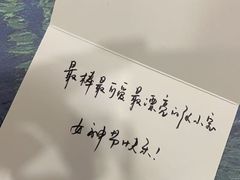 最棒最可爱最漂亮的小宝
女神节快乐！